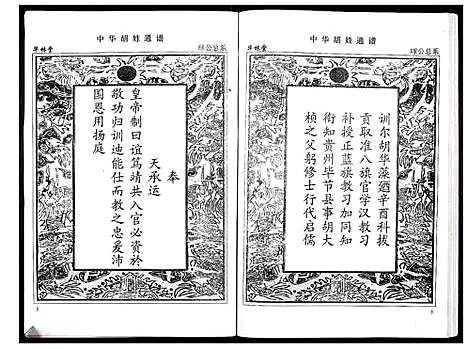 中华胡姓通谱
华林堂
公总系
奉
天承运
皇帝制曰谊笃靖共入官必资於
敬功归训迪能仕而教之忠爱沛
国恩用扬庭
中华胡姓通谱
华林堂
公总系
训尔胡华藻廼辛酉科拔
贡取准八旗官学汉教习
补授正蓝旗教习加同知
衔知贵州毕节县事胡大
桢之父躬修士行代启儒